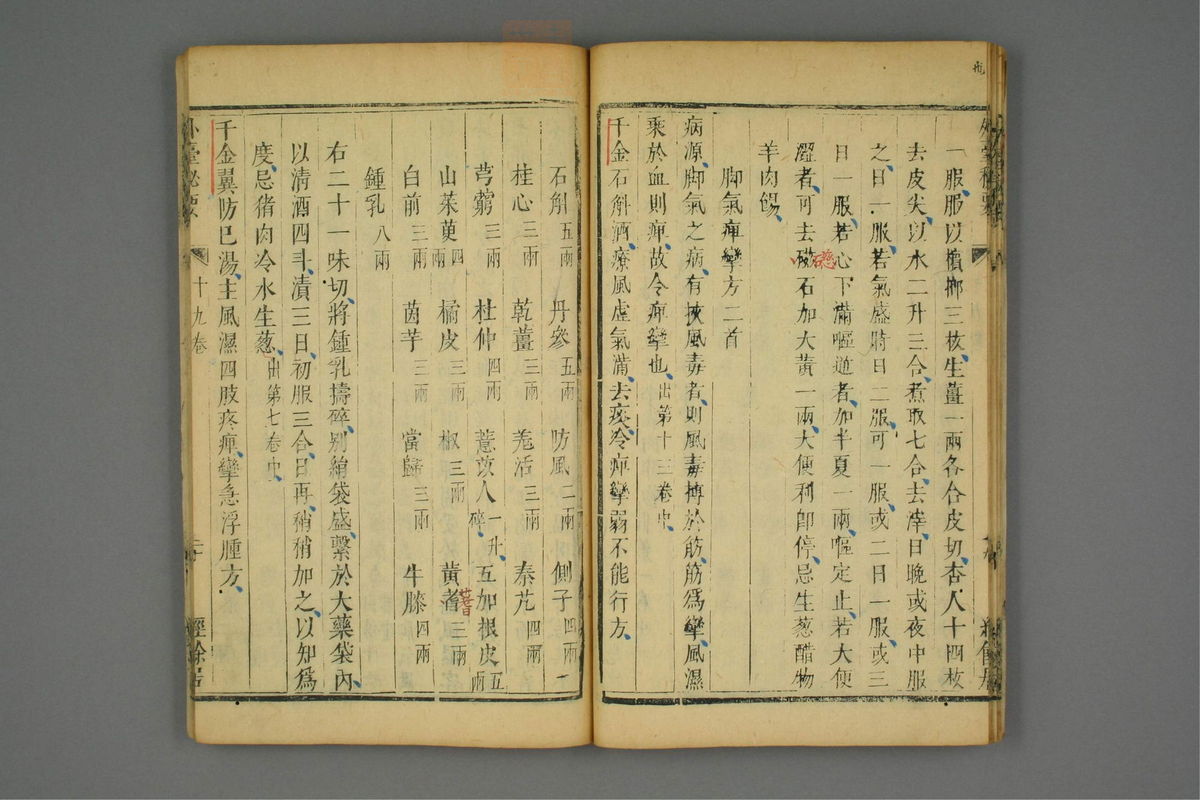 一服服以檳榔三枚生薑一兩各合皮切杏人十四枚
去皮尖以水二升三合煮取七合去滓日晚或夜中服
之日一服若氣盛時日二服可一服或二日一服或三
日一服若心下滿嘔逆者加半夏一兩嘔定止若大便
澀者可去磁石加大黄一兩大便利即停忌生葱醋物
羊肉餳
脚氣痺攣方二首
病源脚氣之病有挾風毒者則風毒搏於筋筋爲攣風濕
乘於血則痺故令痺攣也出第十三卷中
千金石斛酒療風虚氣滿去疼冷痺攣弱不能行方
石斛五兩 丹參五兩 防風二兩 側子四兩
桂心三兩 乾薑三兩 羌活三兩 秦艽四兩
芎藭三兩 杜仲四兩 薏苡人一升碎 五加根皮五兩
山茱萸四兩 橘皮三兩 椒三兩 黄耆三兩
蓍
白前三兩 茵芋三兩 當歸三兩 牛膝四兩
鍾乳八兩
右二十一味切將鍾乳擣碎别絹袋盛繫於大藥袋内
以清酒四斗漬三日初服三合日再稍稍加之以知爲
度忌猪肉冷水生葱出第七卷中
千金翼防巳湯主風濕四肢疼痺攣急浮腫方
外臺秘要 十九卷 二十 經餘居